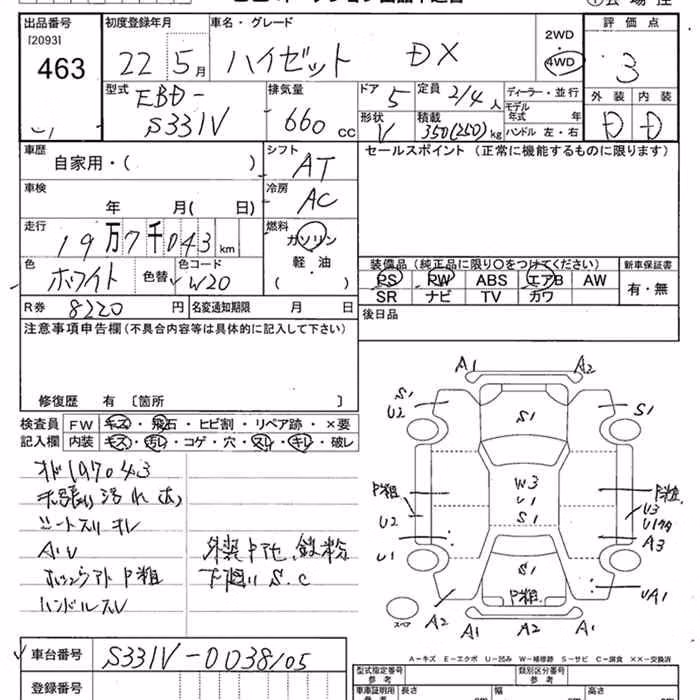 出品番号 初度登録年月 車名・グレード 2WD 評価点
[2093] 463 22 5月 ハイゼット DX 4WD 3
型式 EBD- S331V 排気量 660cc ドア 5 定員 2/4人 ディーラー・並行 外装 内装
形状 V 積載 350(250)kg モデル年式 年 ハンドル 左・右 D D
車歴 自家用・( ) シフト AT セールスポイント (正常に機能するものに限ります)
車検 年 月( 日) 冷房 AC
走行 19万7千043km 燃料 ガソリン 軽・油
色 ホワイト 色替 色コード W20 装備品(純正品に限り○をつけてください) 新車保証書
PS PW ABS エアB AW 有・無
R券 8220円 名変通知期限 月 日 SR ナビ TV カワ
注意事項申告欄(不具合内容等は具体的に記入して下さい) 後日品
修復歴 有 〔箇所 〕
検査員 FW キズ・飛石・ヒビ割・リペア跡・×要
記入欄 内装 キズ・汚れ・コゲ・穴・スレ・キレ・破レ
オド197043
シートスリキレ
ハンドルスレ
下廻り S.C
A1 A2
S1 U2 S1 S1
W3 U1 S1
P粗 P粗
U2 U3
U1 A3
S1 P粗
UA1
A2 A1 A2 A1
スペア
A-キズ E-エクボ U-凹み W-補修跡 S-サビ C-腐食 ××-交換済
車台番号 S331V-0038105
登録番号
型式指定番号 参考 類別区分番号 参考
車車証明用 参考 長さ cm 幅 cm 高さ cm